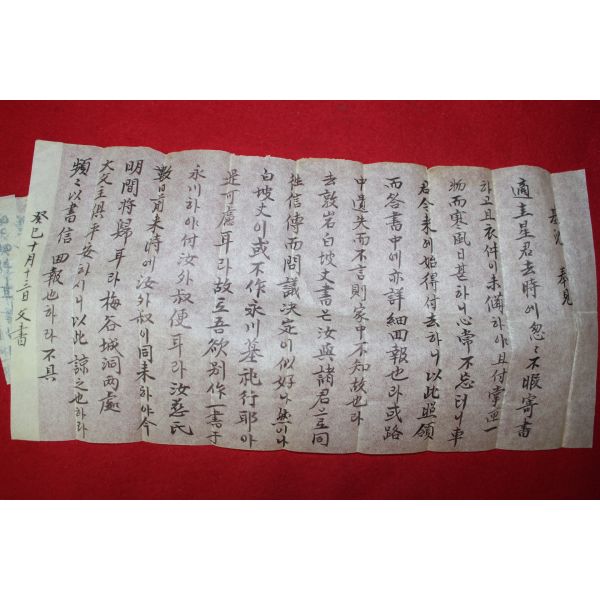 適圭星君去時에忽〻不暇寄書
하고且衣件이未備하야且付掌匣一
物而寒風日甚하니心常不忘터니車
君今来에始得付去하니以此照領
而答書中에亦詳細回報也라或路
中遺失而不言則家中不知故也라
去敦岩白坡丈書으汝與諸君으로同
往信傳而問議決定이似好나然이나
白坡丈이或不作永川墓祀行耶아
是可慮耳라故로吾欲别作一書于
永川하야付汝外叔便耳라汝慈氏
數日前来時에汝外叔이同来하야今
明間將歸耳라梅谷城洞両處
大父主俱平安하시니以此諒之也하라
頻〻以書信回報也하라不具
癸巳十月十三日父書